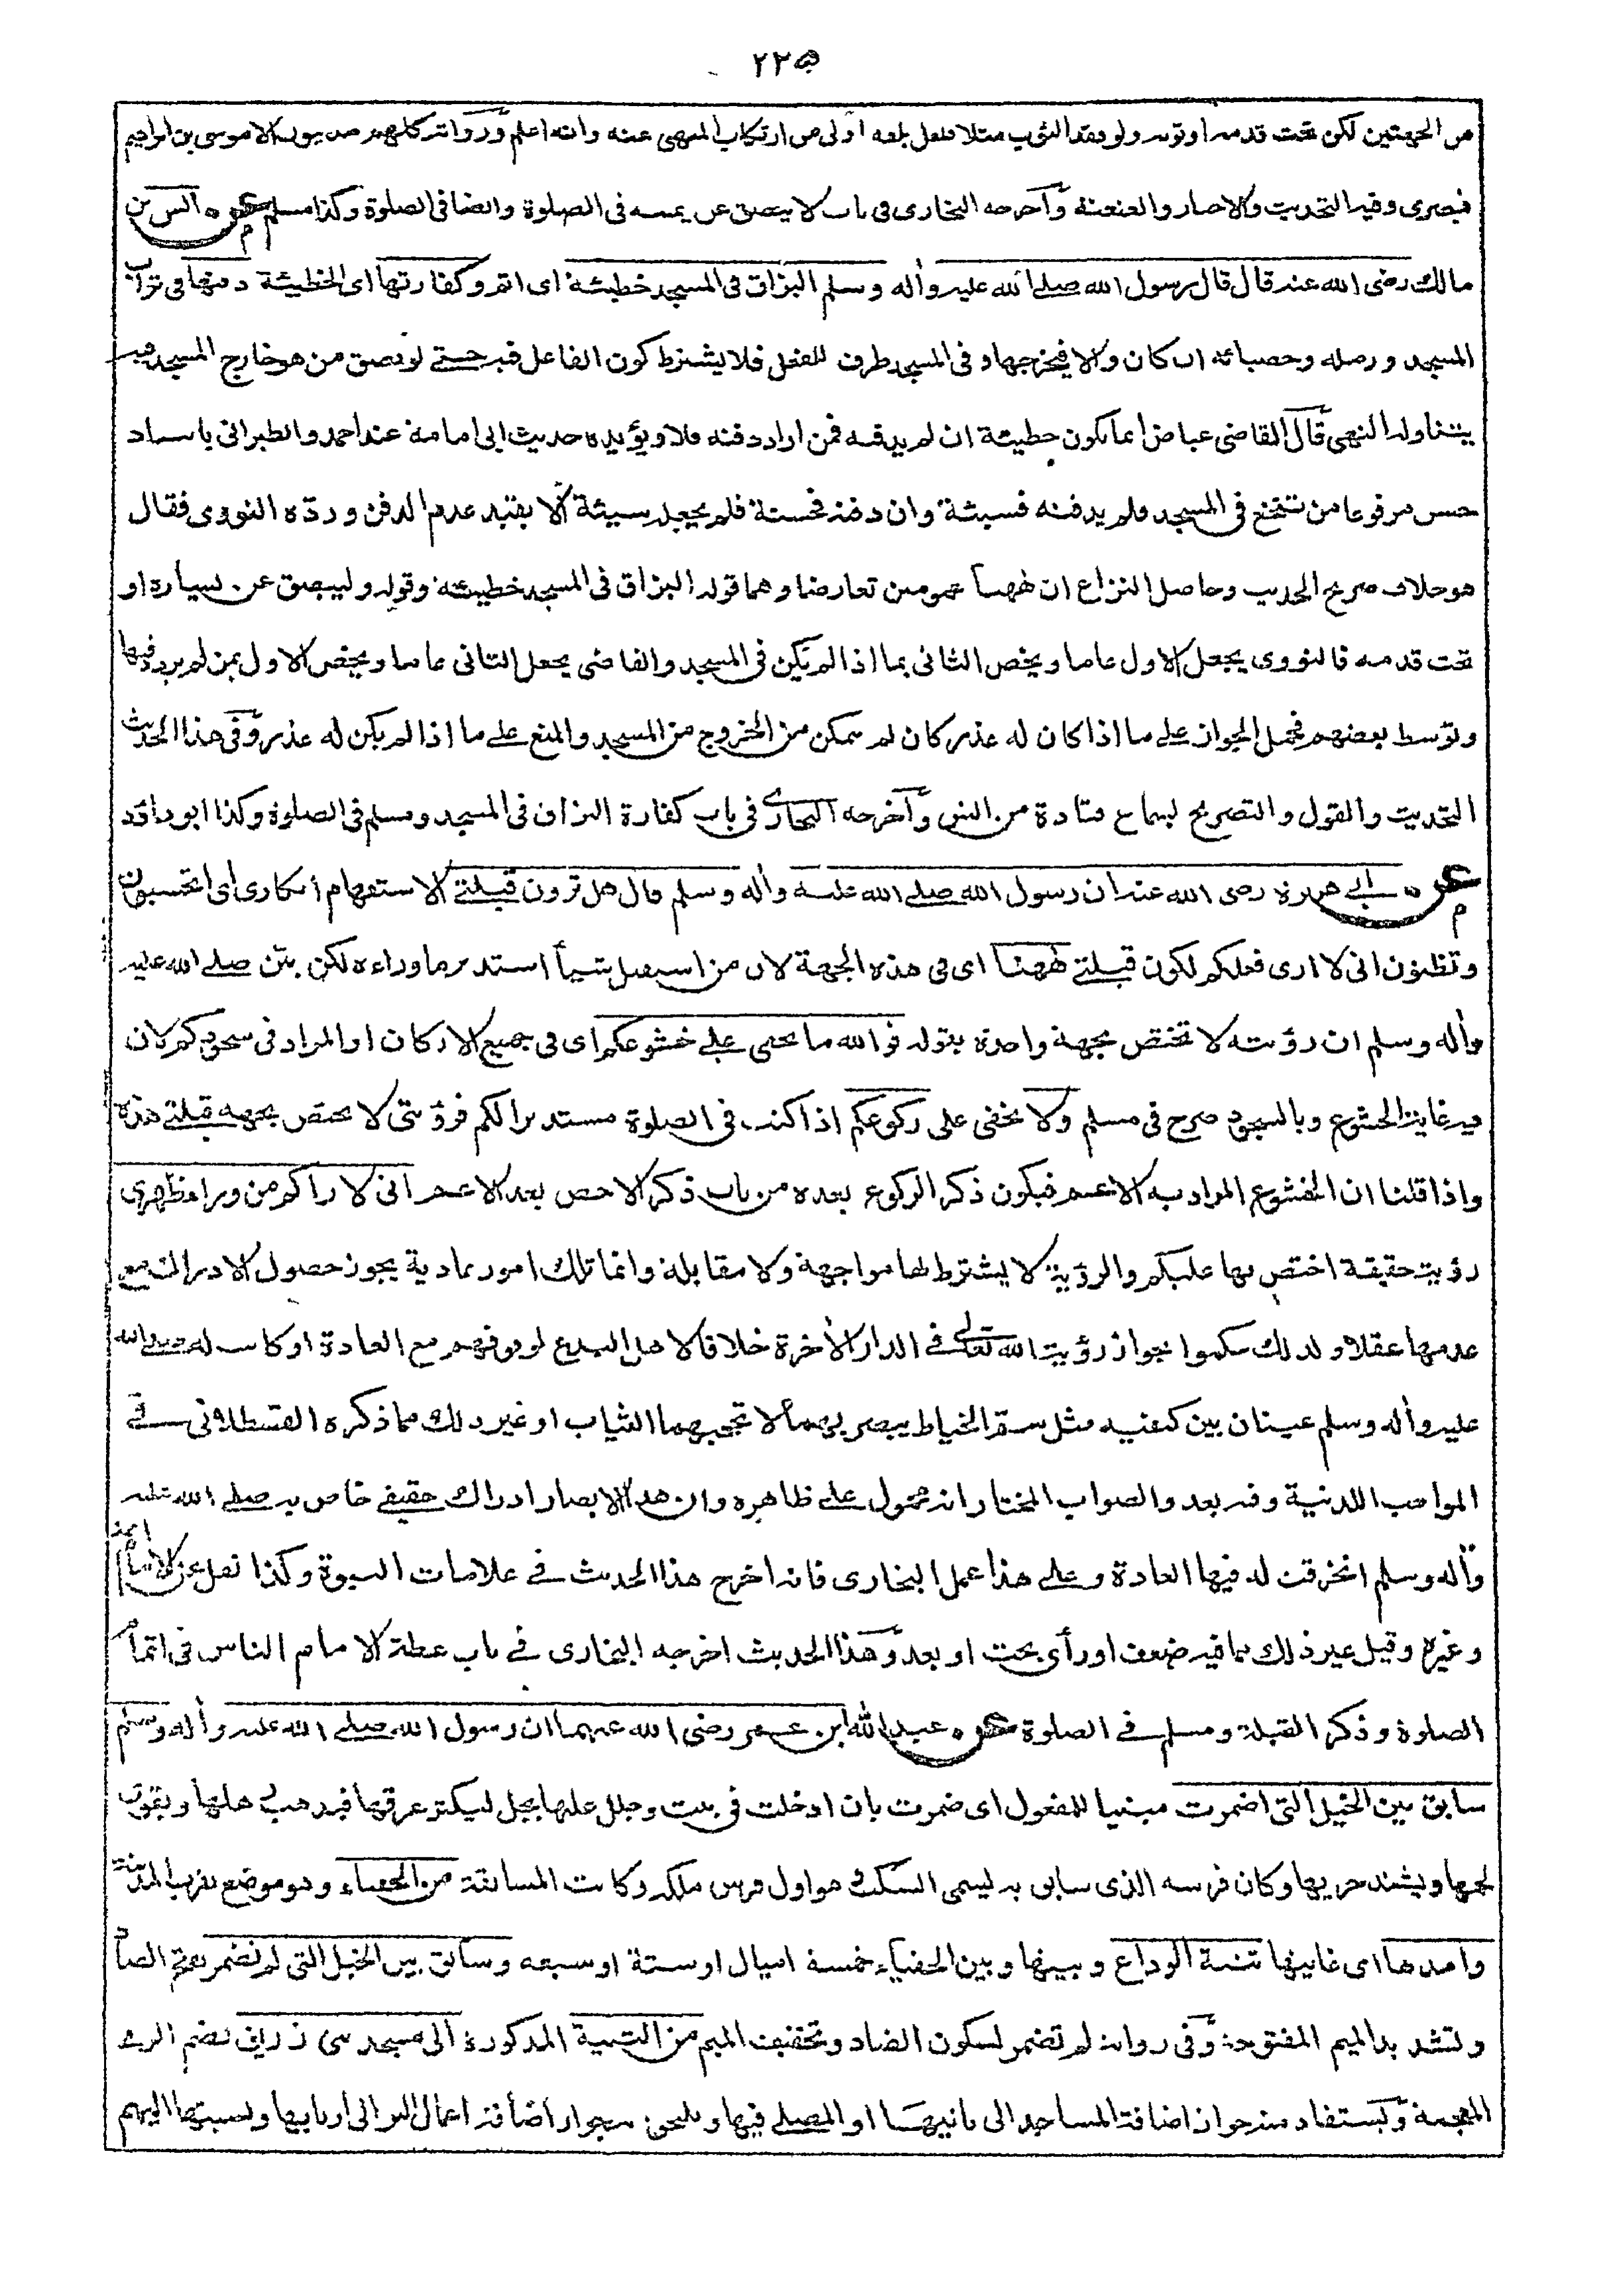 ٢٢٥
من الجهتين لكن تحت قدمه او ثوبه ولو فقد الثوب مثلا فلعل بلعه أولى من ارتكاب المنهى عنه والله اعلم ورواته كلهم مدنيون الا موسى بن ابراهيم
فبصرى وفيه التحديث والاخبار والعنعنة وأخرجه البخارى فى باب لا يبصق عن يمينه فى الصلوة وايضا فى الصلوة وكذا مسلم عن انس بن
مالك رضى الله عنه قال قال رسول الله صلے الله عليه وأله وسلم البزاق فى المسجد خطيئة اى اثم وكفارتها اى الخطيئة دفنها فى تراب
المسجد ورمله وحصبائه ان كان والا فيخرجها وفى المسجد ظرف للفعل فلا يشترط كون الفاعل فيه حتے لو بصق من هو خارج المسجد فيه
يتناوله النهى قال القاضى عياض انما يكون خطيئة ان لم يدفنه فمن اراد دفنه فلا ويؤيده حديث ابى امامة عند احمد والطبرانى باسناد
حسن مرفوعا من تنخع فى المسجد فلم يدفنه فسيئة وان دفنه فحسنة فلم يجعله سيئة الا بقيد عدم الدفن وردّه النووى فقال
هو خلاف صريح الحديث وحاصل النزاع ان ههنا عمومين تعارضا وهما قوله البزاق فى المسجد خطيئة وقوله وليبصق عن يساره او
تحت قدمه فالنووى يجعل الاول عاما ويخص الثانى بما اذا لم يكن فى المسجد والقاضى يجعل الثانى عاما ويخص الاول بمن لم يرد دفنها
وتوسط بعضهم فحمل الجواز علے ما اذا كان له عذر كان لم يتمكن من الخروج من المسجد والمنع علے ما اذا لم يكن له عذر وفى هذا الحديث
التحديث والقول والتصريح بسماع قتادة من انس وأخرجه البخارى فى باب كفارة البزاق فى المسجد ومسلم فى الصلوة وكذا ابو داؤد
عن ابى هريرة رضى الله عنه ان رسول الله صلے الله عليه وأله وسلم قال هل ترون قبلتے الاستفهام انكارى اى اتحسبون
وتظنون انى لا ارى فعلكم لكون قبلتے ههنا اى فى هذه الجهة لان من استقبل شيأ استدبر ما وراءه لكن بيّن صلے الله عليه
وأله وسلم ان رؤيته لا تختص بجهة واحدة بقوله فوالله ما يخفى علے خشوعكم اى فى جميع الاركان او المراد فى سجودكم لان
فيه غاية الخشوع وبالسجود صرح فى مسلم ولا يخفى على ركوعكم اذا كنت فى الصلوة مستدبرا لكم فرؤيتى لا تختص بجهة قبلتے هذه
واذا قلنا ان الخشوع المراد به الاعم فيكون ذكر الركوع بعده من باب ذكر الاخص بعد الاعم انى لاراكم من وراء ظهرى
رؤية حقيقة اختص بها عليكم والرؤية لا يشترط لها مواجهة ولا مقابلة وانما تلك امور عادية يجوز حصول الادراك مع
عدمها عقلا ولذلك حكموا بجواز رؤية الله تعالى فے الدار الأخرة خلافا لاهل البدع لوقوفهم مع العادة او كانت له صلے الله
عليه وأله وسلم عينان بين كتفيه مثل سم الخياط يبصر بهما لا تحجبهما الثياب او غير ذلك مما ذكره القسطلانى فے
المواهب اللدنية وفيه بعد والصواب المختار انه محمول علے ظاهره وان هذا الابصار ادراك حقيقے خاص به صلے الله عليه
وأله وسلم انخرقت له فيها العادة وعلے هذا عمل البخارى فانه اخرج هذا الحديث فے علامات النبوة وكذا نقل عن الامام احمد
وغيره وقيل غير ذلك مما فيه ضعف او رأى بحت او بعد وهذا الحديث اخرجه البخارى فے باب عظة الامام الناس فى اتمام
الصلوة وذكر القبلة ومسلم فے الصلوة عن عبد الله ابن عمر رضى الله عنهما ان رسول الله صلے الله عليه وأله وسلم
سابق بين الخيل التى اضمرت مبنيا للمفعول اى ضمرت بان ادخلت فى بيت وجلل عليها بجل ليكثر عرقها فيذهب رهلها ويقوى
لحمها ويشتد جريها وكان فرسه الذى سابق به يسمى السكب وهو اول فرس ملكه وكانت المسابقة من الحفياء وهو موضع بقرب المدينة
وامدها اى غايتها ثنية الوداع وبينها وبين الحفياء خمسة اميال او ستة او سبعة وسابق بين الخيل التى لم تضمر بفتح الضاد
وتشديد الميم المفتوحة وفى رواية لم تضمر بسكون الضاد وتخفيف الميم من الثنية المذكورة الى مسجد بنى زريق بضم الزاى
المعجمة ويستفاد منه جواز اضافة المساجد الى بانيها او المصلے فيها ويلحق به جواز اضافة اعمال البر الى اربابها ونسبتها اليهم